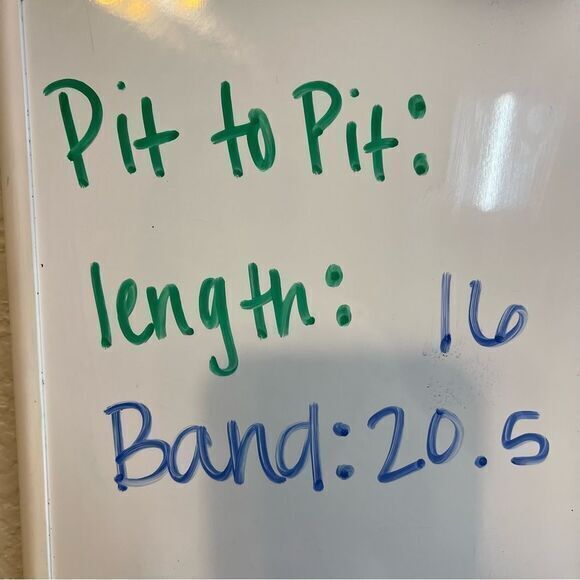 Pit to Pit:
length: 16
Band: 20.5